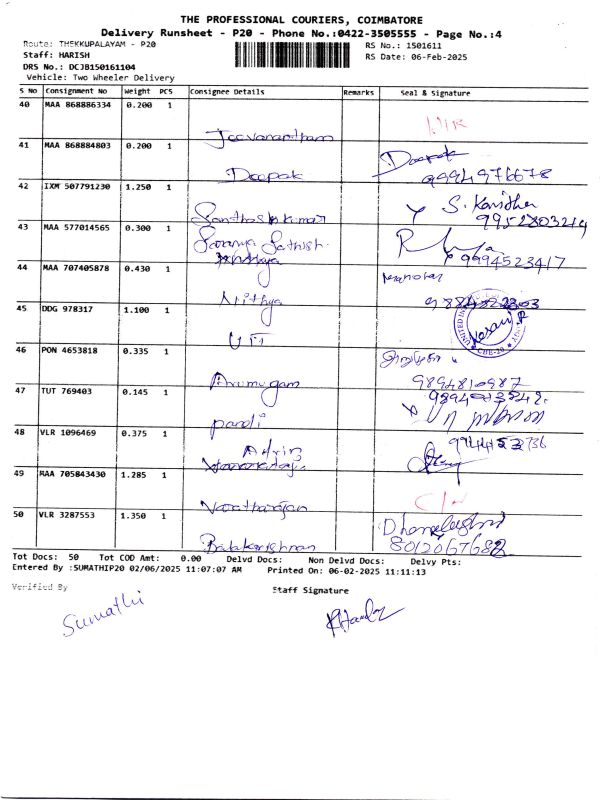 THE PROFESSIONAL COURIERS, COIMBATORE
Delivery Runsheet - P20 - Phone No.:0422-3505555 - Page No.:4
Route: THEKKUPALAYAM - P20
RS No.: 1501611
Staff: HARISH
RS Date: 06-Feb-2025
DRS No.: DCJB150161104
Vehicle: Two Wheeler Delivery
S No Consignment No Weight PCS Consignee Details Remarks Seal & Signature
40 MAA 868886334 0.200 1
Jeevanantham
41 MAA 868884803 0.200 1
Deepak Deepak
9994976678
42 IXM 507791230 1.250 1
Santhoshkumar S. Kavitha
9952803219
43 MAA 577014565 0.300 1
Saranya Sathish
9994523417
44 MAA 707405878 0.430 1
Nithya Manohar
45 DDG 978317 1.100 1
UTI
46 PON 4653818 0.335 1
Arumugam 9894810987
47 TUT 769403 0.145 1
Pandi
48 VLR 1096469 0.375 1
49 MAA 705843430 1.285 1
Varatharajan
50 VLR 3287553 1.350 1
Balakrishnan 8012067682
Tot Docs: 50 Tot COD Amt: 0.00 Delvd Docs: Non Delvd Docs: Delvy Pts:
Entered By :SUMATHIP20 02/06/2025 11:07:07 AM Printed On: 06-02-2025 11:11:13
Verified By Staff Signature
Sumathi